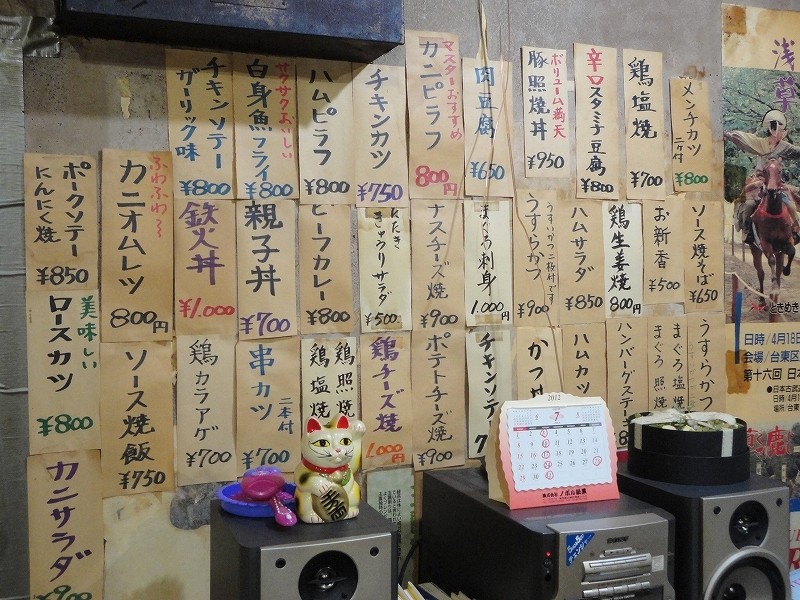 チキンソテー
ガーリック味
¥800
サクサクおいしい
白身魚フライ
¥800
ハムピラフ
¥800
チキンカツ
¥750
マスターおすすめ
カニピラフ
800円
肉豆腐
¥650
ボリューム満天
豚照焼丼
¥950
辛口スタミナ豆腐
¥800
鶏塩焼
¥700
メンチカツ
二ケ付
¥800
ポークソテー
にんにく焼
¥850
ふわふわ〜
カニオムレツ
800円
鉄火丼
¥1,000
親子丼
¥700
ビーフカレー
¥800
たたき
きゅうりサラダ
¥500
ナスチーズ焼
¥900
まぐろ刺身
1,000円
うすいかつ二枚付です
うすらかつ
¥900
ハムサラダ
¥850
鶏生姜焼
800円
お新香
¥500
ソース焼そば
¥650
美味しい
ロースカツ
¥800
ソース焼飯
¥750
鶏カラアゲ
¥700
串カツ
二本付
¥700
鶏照焼
鶏塩焼
鶏チーズ焼
1,000円
ポテトチーズ焼
¥900
チキンソテー
かつ丼
ハムカツ
ハンバーグステーキ
まぐろ塩焼
まぐろ照
うすらかつ
カニサラダ
¥900
浅草
ときめき
日時/4月18日
会場/台東区
第十六回 日本
2012
7
株式会社 ノボル紙業